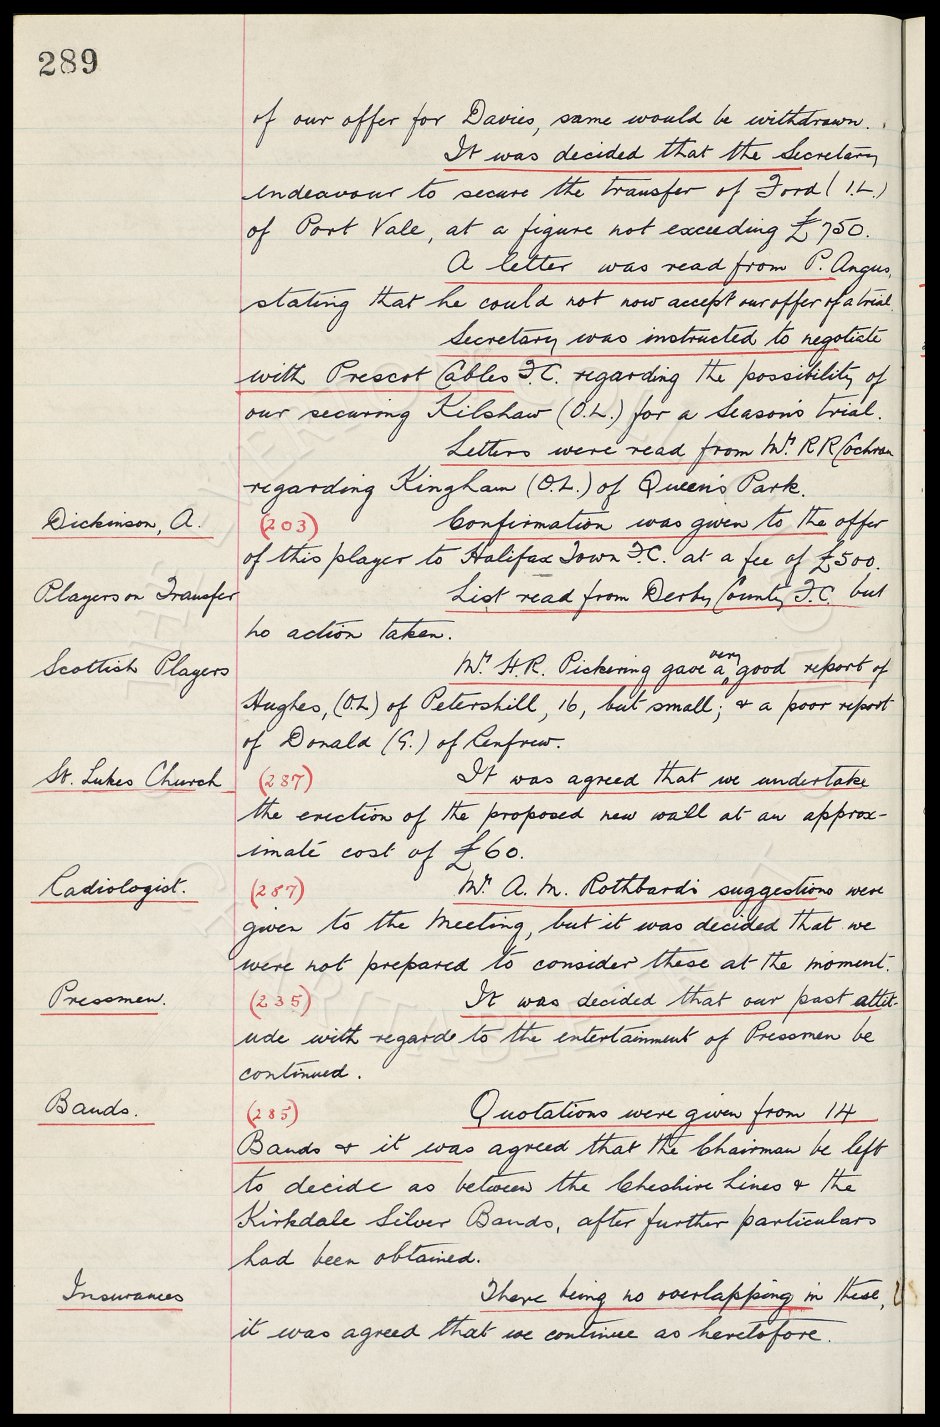 289
of our offer for Davies, same would be withdrawn.
It was decided that the Secretary
endeavour to secure the transfer of Ford (I.L.)
of Port Vale, at a figure not exceeding £750.
A letter was read from P. Angus,
stating that he could not now accept our offer of a trial.
Secretary was instructed to negotiate
with Prescot Cables F.C. regarding the possibility of
our securing Kilshaw (O.L.) for a Season's trial.
Letters were read from Mr. R R Cochran
regarding Kingham (O.L.) of Queen's Park.
Dickinson, A. (203) Confirmation was given to the offer
of this player to Halifax Town F.C. at a fee of £500.
Players on Transfer List read from Derby County F.C. but
no action taken.
Scottish Players Mr. H.R. Pickering gave a very good report of
Hughes, (O.L) of Petershill, 16, but small; & a poor report
of Donald (G.) of Renfrew.
St. Lukes Church (287) It was agreed that we undertake
the erection of the proposed new wall at an approx-
imate cost of £60.
Radiologist. (287) Mr. A. M. Rothbard's suggestions were
given to the Meeting, but it was decided that we
were not prepared to consider these at the moment.
Pressmen. (235) It was decided that our past attit-
ude with regard to the entertainment of Pressmen be
continued.
Bands. (285) Quotations were given from 14
Bands & it was agreed that the Chairman be left
to decide as between the Cheshire Lines & the
Kirkdale Silver Bands, after further particulars
had been obtained.
Insurances There being no overlapping in these,
it was agreed that we continue as heretofore.